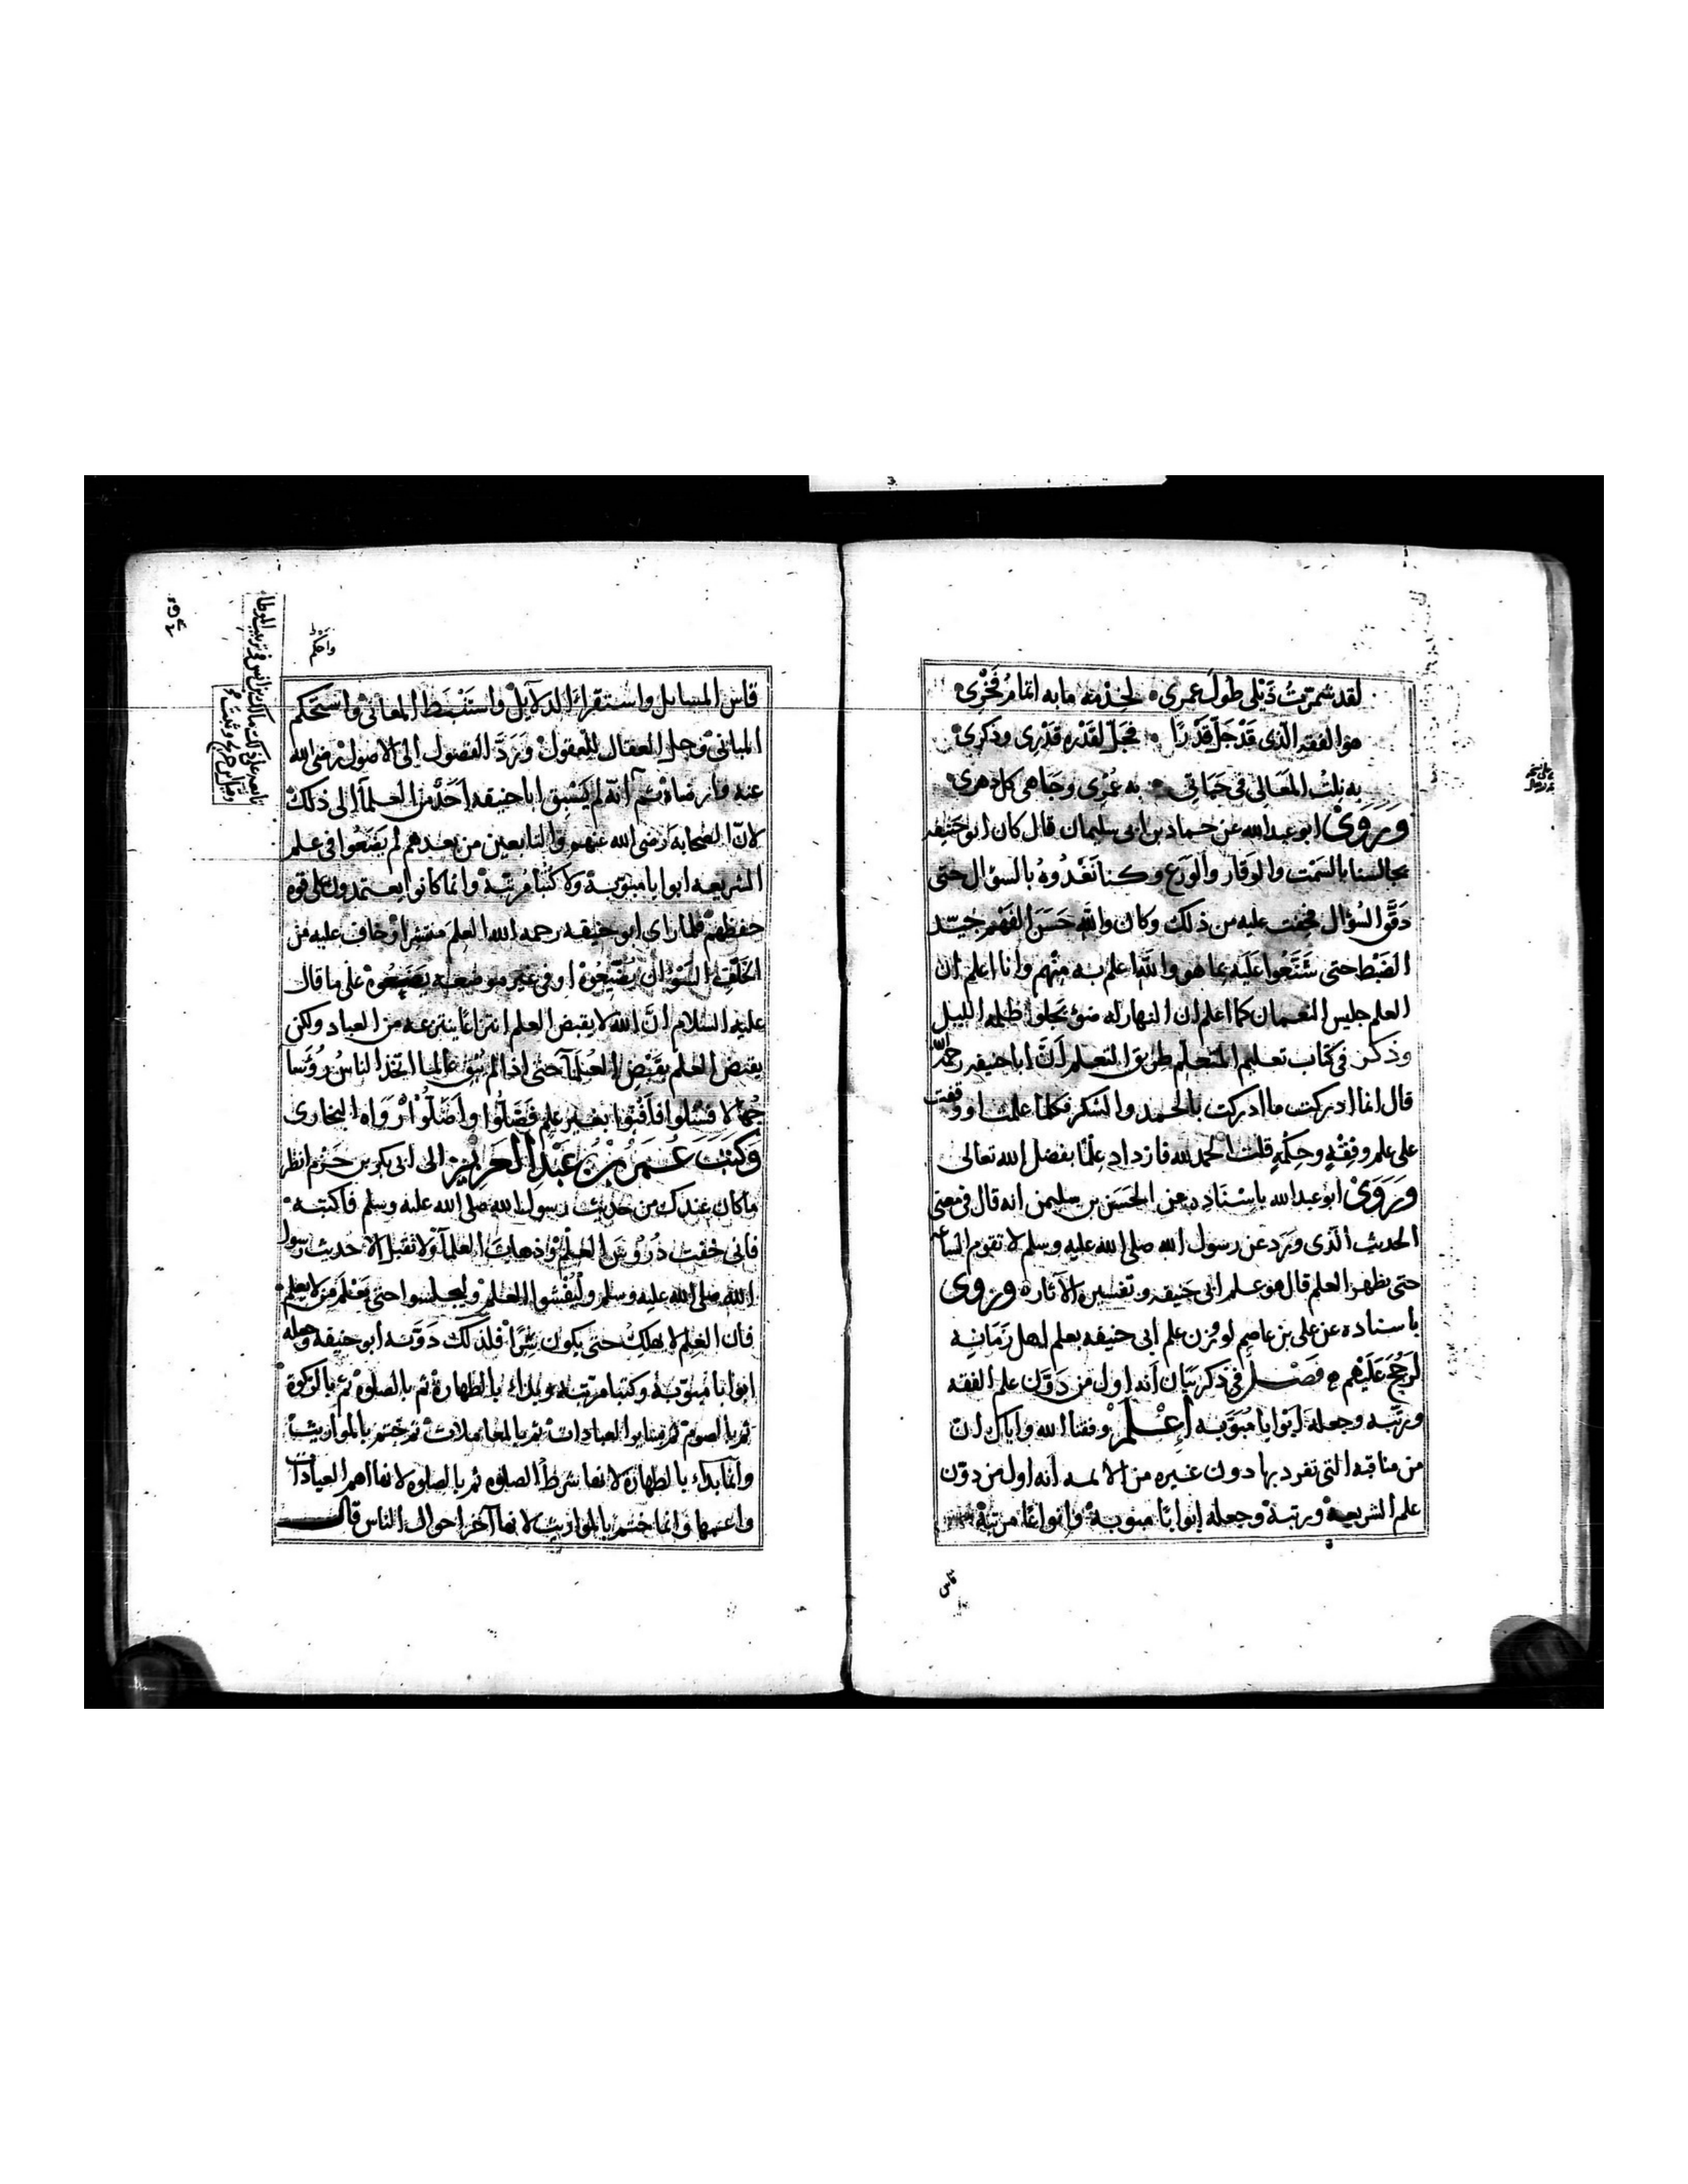 لقد شمرت ذيلى طول عمرى لخدمته مابه اتمام فخرى
هو الفقه الذى قد جل قدرا فجل لقدره قدرى وذكرى
به نلت المعالى فى حياتى به عزى وجاهى كل دهرى
وروى ابو عبد الله عن حماد بن ابى سليمان قال كان ابو حنيفه
يجالسنا بالسمت والوقار والورع وكنا نغذوه بالسؤال حتى
دقق السؤال فخفت عليه من ذلك وكان والله حسن الفهم جيد
الضبط حتى شنعوا عليه بما هو والله اعلم به منهم وانا اعلم ان
العلم جليس النعمان كما اعلم ان النهار له ضوء يجلوا ظلمه الليل
وذكر فى كتاب تعليم المتعلم طريق التعلم ان ابا حنيفه رحمه الله
قال انما ادركت ما ادركت بالحمد والشكر فكلما علمت او وقفت
على علم وفقه وحكمة قلت الحمد لله فازداد علما بفضل الله تعالى
وروى ابو عبد الله باسناده عن الحسن بن سليمن انه قال فى معنى
الحديث الذى ورد عن رسول الله صلى الله عليه وسلم لا تقوم الساعه
حتى يظهر العلم قال هو علم ابى حنيفه وتفسيره الآثار وروى
باسناده عن على بن عاصم لو وزن علم ابى حنيفه بعلم اهل زمانه
لرجح عليهم فصل فى ذكر بيان انه اول من دون علم الفقه
ورتبه وجعله ابوابا مبوبه اعلم وفقنا الله واياك ان
من مناقبه التى تفرد بها دون غيره من الائمه انه اول من دون
علم الشريعة ورتبه وجعله ابوابا مبوبة وانواعا مرتبة
قاس
واحكم
قاس المسايل واستقراء الدلايل واستنبط المعانى واستحكم
المبانى وحل العقال للعقول ورد الفصول الى الاصول رضى الله
عنه وارضاه ثم انه لم يسبق ابا حنيفه احد من العلماء الى ذلك
لان الصحابه رضى الله عنهم والتابعين من بعدهم لم يضعوا فى علم
الشريعه ابوابا مبوبة ولا كتبا مرتبة وانما كانوا يعتمدون على قوه
حفظهم فلما راى ابو حنيفه رحمه الله العلم منتشرا وخاف عليه من
الخلف السوء ان يضيعوه او فى غير موضعه يضعوه على ما قال
عليه السلام ان الله لا يقبض العلم انتزاعا ينتزعه من العباد ولكن
يقبض العلم بقبض العلماء حتى اذا لم يبق عالما اتخذ الناس رؤسا
جهالا فسئلوا فافتوا بغير علم فضلوا واضلوا رواه البخارى
وكتب عمر بن عبد العزيز الى ابى بكر بن حزم انظر
ما كان عندك من حديث رسول الله صلى الله عليه وسلم فاكتبه
فانى خفت دروس العلم وذهاب العلماء ولا تقبل الا حديث رسول
الله صلى الله عليه وسلم وليفشوا العلم وليجلسوا حتى يعلم من لا يعلم
فان العلم لا يهلك حتى يكون سرا فلذلك دونه ابو حنيفه وجعله
ابوابا مبوبة وكتبا مرتبة وبداء بالطهارة ثم بالصلوة ثم بالزكوة
ثم بالصوم ثم بساير العبادات ثم بالمعاملات ثم ختم بالمواريث
وانما بداء بالطهارة لانها شرط الصلوه ثم بالصلوه لانها اهم العبادات
واعمها وانما ختم بالمواريث لانها آخر احوال الناس قال
تابعه على ذلك مالك بن انس فى ترتيب الموطا